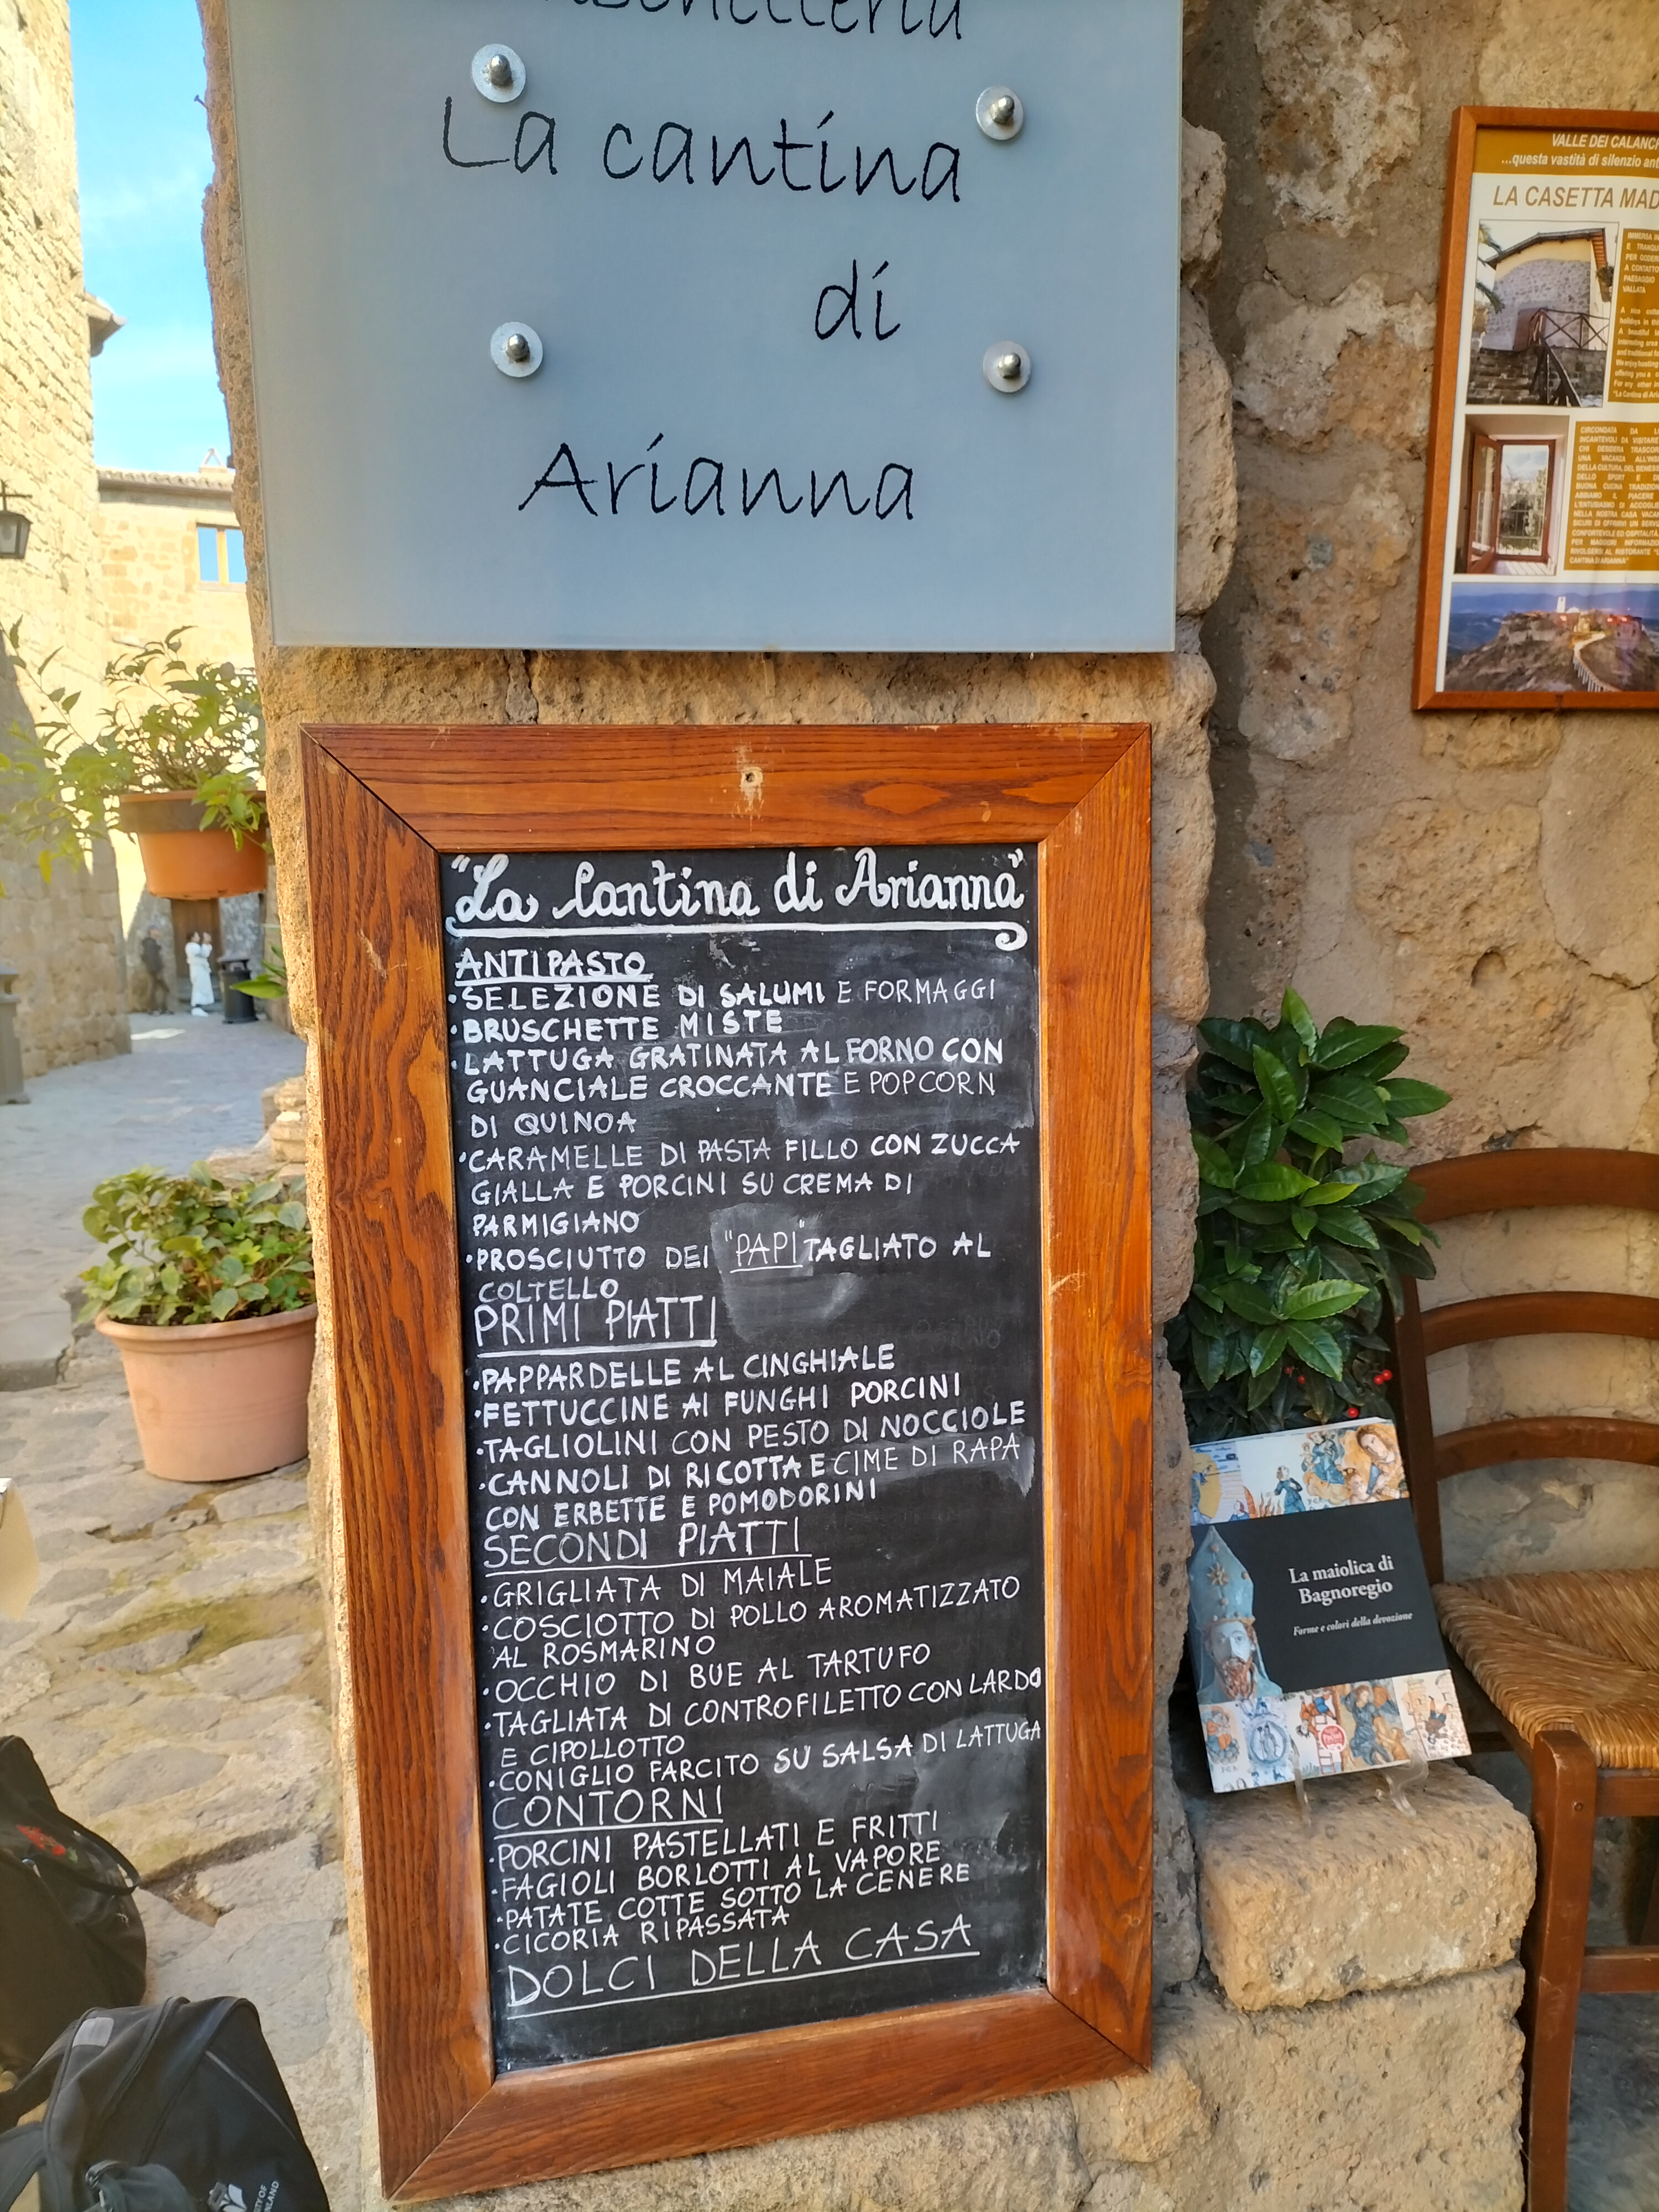 La cantina
di
Arianna
VALLE DEI
...questa vastità di silenzio
LA CASETTA
"La Cantina di Arianna"
ANTIPASTO
•SELEZIONE DI SALUMI E FORMAGGI
•BRUSCHETTE MISTE
•LATTUGA GRATINATA AL FORNO CON
GUANCIALE CROCCANTE E POPCORN
DI QUINOA
•CARAMELLE DI PASTA FILLO CON ZUCCA
GIALLA E PORCINI SU CREMA DI
PARMIGIANO
•PROSCIUTTO DEI "PAPI" TAGLIATO AL
COLTELLO
PRIMI PIATTI
•PAPPARDELLE AL CINGHIALE
•FETTUCCINE AI FUNGHI PORCINI
•TAGLIOLINI CON PESTO DI NOCCIOLE
•CANNOLI DI RICOTTA E CIME DI RAPA
CON ERBETTE E POMODORINI
SECONDI PIATTI
•GRIGLIATA DI MAIALE
•COSCIOTTO DI POLLO AROMATIZZATO
AL ROSMARINO
•OCCHIO DI BUE AL TARTUFO
•TAGLIATA DI CONTROFILETTO CON LARDO
E CIPOLLOTTO
•CONIGLIO FARCITO SU SALSA DI LATTUGA
CONTORNI
•PORCINI PASTELLATI E FRITTI
•FAGIOLI BORLOTTI AL VAPORE
•PATATE COTTE SOTTO LA CENERE
•CICORIA RIPASSATA
DOLCI DELLA CASA
La maiolica di
Bagnoregio
Forme e colori della devozione